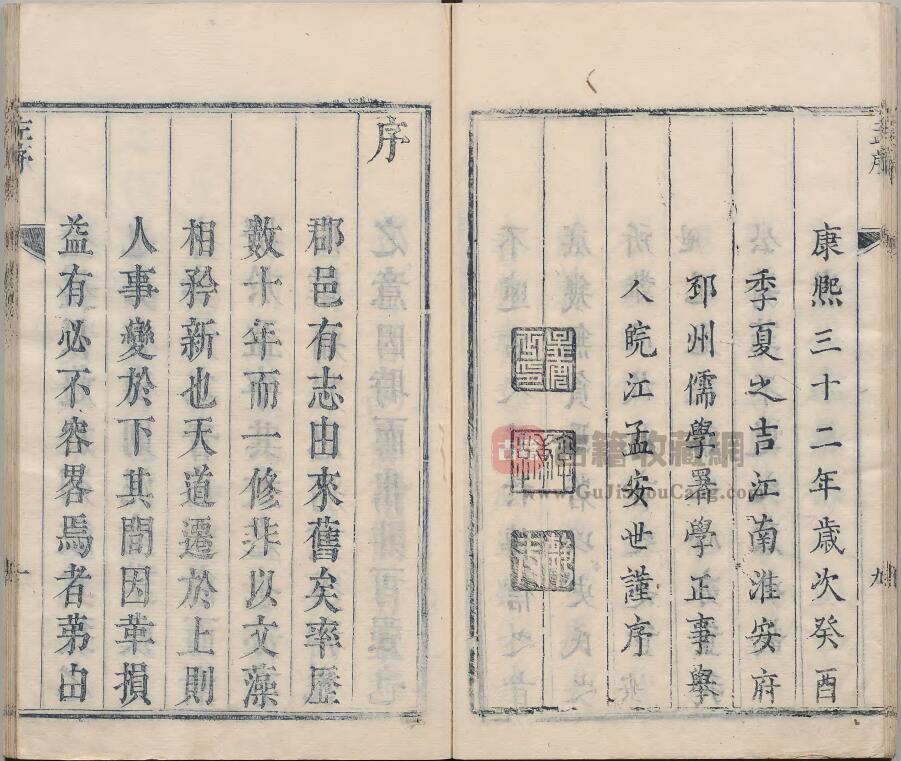 康熙三十二年歲次癸酉
季夏之吉江南淮安府
邳州儒學署學正事舉
人皖江孟安世謹序
九
序
郡邑有志由來舊矣率歷
數十年而一修非以文藻
相矜新也天道遷於上則
人事變於下其間因革損
益有必不容畧焉者苐由
一
古籍收藏網
www.GuJiShouCang.com